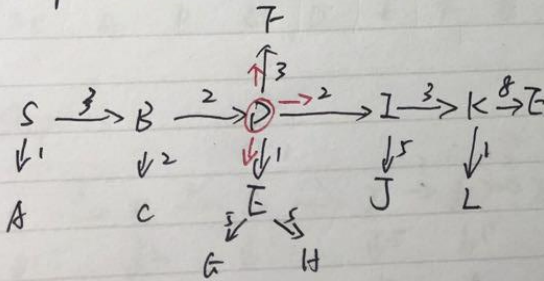 F
3
S 3 B 2 D 2 I 3 K 8 E
1 2 1 5 1
A C E J L
5 5
G H